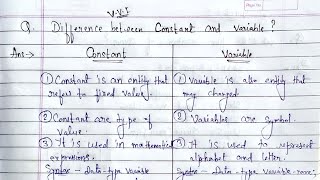 V.V.I
Q. Difference between Constant and variable?
Ans→ Constant Variable
① Constant is an entity that
refer to fixed value.
② Constant are type of
value.
③ It is used in mathematical
expressions.
Syntax - Data-type Variable
① Variable is also entity that
may changed
② Variables are Symbol.
③ It is used to represent
alphabet and letter.
Syntax - Data-type variable-name;